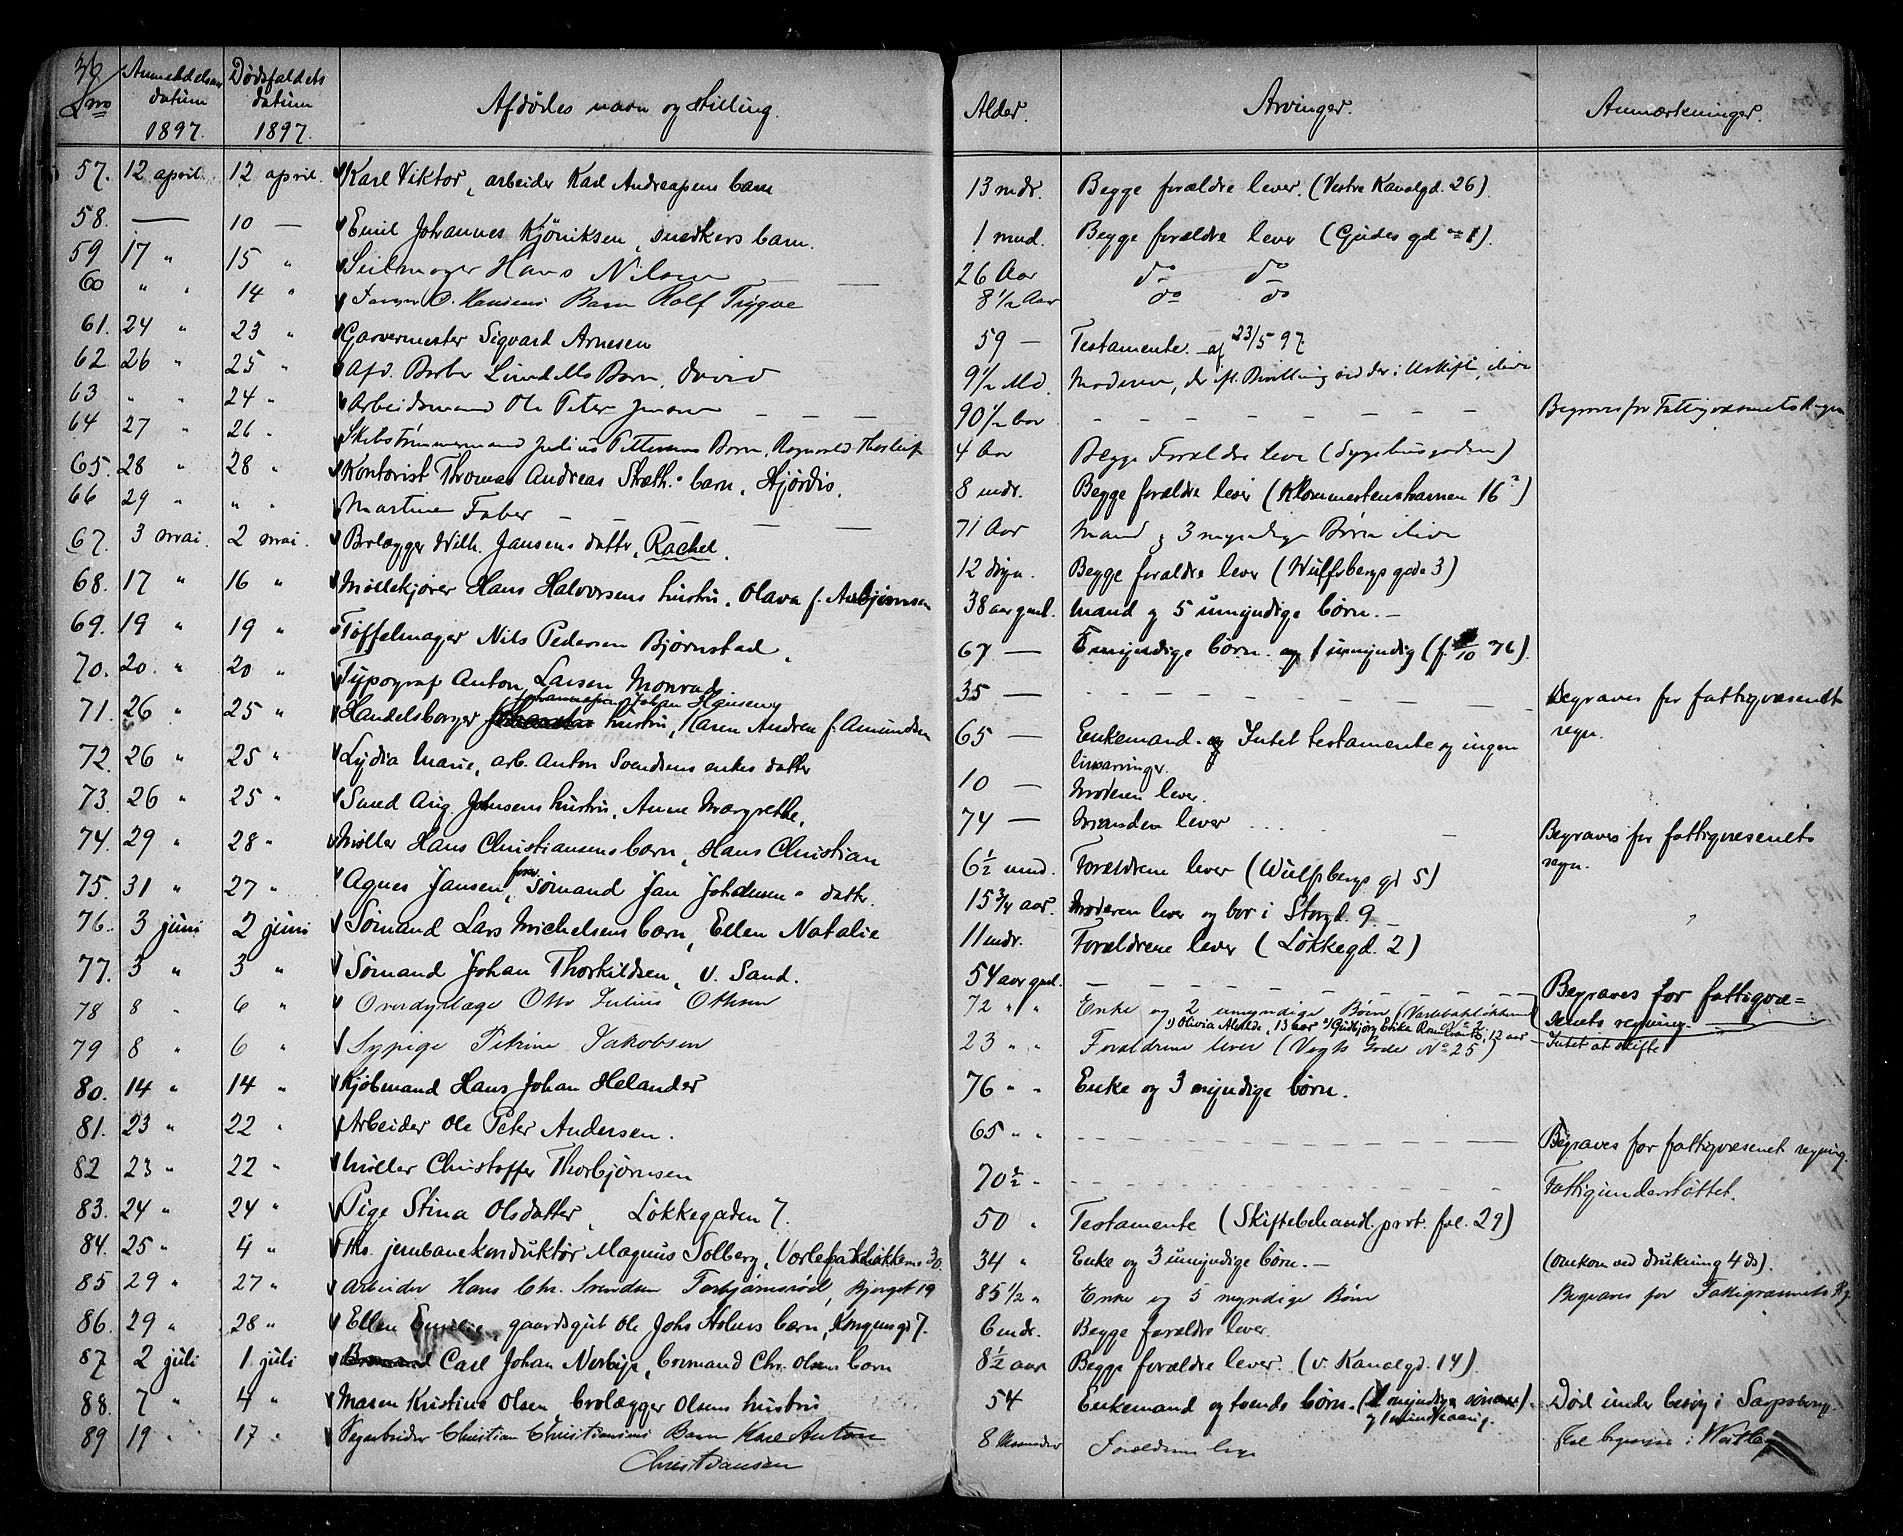 36
Lno Anmeldelses datum 1897. Dødsfaldets datum 1897. Afdødes navn og stilling. Alder. Arvinger. Anmærkninger.
57. 12 april. 12 april. Karl Viktor, arbeider Karl Andreasens barn 13 mdr. Begge forældre lever. (Vestre Kanalgd. 26).
58. — 10 — Emil Johannes Kjøniksen, snedkers barn. 1 mnd. Begge forældre lever (Gudes gd № 1).
59 17 " 15 " Seilmager Hans Nilsen — 26 Aar do do
60 " " 14 " C. Hansens Barn Rolf Trygve 8 1/2 Aar do do
61. 24 " 23 " Garvermester Sigvard Arnesen 59 — Testamente. af 23/5 97.
62 26 " 25 " Afd. Barber Lundells Barn, David 9 1/2 Md Moderen, der i Uskifte
63 " " 24 " Arbeidsmand Ole Peter Jensen — — — 90 1/2 Aar — — — Begraves for Fattigvæsenets Regn
64 27 " 26 " Skibstømmermand Julius Pettersens Barn, Ragnvald Thorleif 4 Aar Begge Forældre leve (Sygehusgaden)
65. 28 " 28 " Kontorist Thomas Andreas Stræths barn, Hjørdis. 8 mdr. Begge forældre lever (Klommestensharnen 16)
66 29 " " " Martine Faber — — — — 71 Aar Mand og 3 myndige Børn ilive
67. 3 mai. 2 mai. Brolægger Wilh. Jansens datter, Rachel. 12 døgn. Begge forældre lever (Wulfsbergs gade 3)
68. 17 " 16 " Møllekjører Hans Halvorsens hustru, Olava f. Anbjørnsen 38 aar gml. Mand og 5 umyndige børn. —
69. 19 " 19 " Tøffelmager Nils Pedersen Bjørnstad, 67 — myndige børn og 1 umyndig (f. /10 76).
70. 20. " 20 " Typograf Anton Larsen Monrad. 35 — — — — Begraves for fattigvæsenet
regn.
Johannesen Johan Hansens
71. 26 " 25 " Handelsborger hustru, Karen Andrea f. Amundsen 65 — Enkemand. og Intet testamente og ingen
livsarvinger.
72. 26 " 25 " Lydia Marie, arb. Anton Svendsens enkes datter 10 — Moderen lever.
73. 26 " 25 " Smed Aug. Johnsens hustru, Anne Margrethe. 74 — Manden lever . . . — Begraves for fattigvæsenets
regn.
74. 29 " 28 " Møller Hans Christiansens barn, Hans Christian 6 1/2 mnd. Forældrene lever (Wulfsbergs gd 5)
75. 31 " 27 " Agnes Jansen, Sømand Jan Johansens datter. 15 3/4 aar. Moderen lever og bor i Storgd. 9. —
76. 3 juni 2 juni Sømand Lars Michelsens barn, Ellen Natalie 11 mdr. Forældrene lever (Løkkegd. 2)
77. 3 " 3 " Sømand Johan Thorkildsen, v. Sand. 54 aar gml. — — — Begraves for fattigvæ=
senets regning.
78 8 " 6 " Overdyrlæge Otto Julius Othsen 72 " " Enke og 2 umyndige Børn
1) Olivia Alvilde, 13 aar 2) Gudbjørg Erika 12 aar
79 8 " 6 " Sypige Petrine Jakobsen 23 " " Forældrene lever (Vogts Gade № 25) — Intet at skifte
80. 14 " 14 " Kjøbmand Hans Johan Helander 76 " " Enke og 3 myndige børn.
81. 23 " 22 " Arbeider Ole Peter Andersen. 65 " " — — — Begraves for fattigvæsenet regning.
82 23 " 22 " Møller Christoffer Thorbjørnsen 70 1/2 " — — — Fattigunderstøttet.
83. 24 " 24 " Pige Stina Olsdatter, Løkkegaden 7. 50 " Testamente (Skiftebehandl. prot. fol. 29)
84. 25 " 4 " Ths. jernbanekonduktør Magnus Solberg, Varlebakløkkerne 30. 34 " Enke og 3 umyndige børn. — (omkom ved drukning 4 ds).
85 29 " 27 " Arbeider Hans Chr. Svendsen Torbjørnsrød, Bjerget 19 85 1/2 " Enke og 5 myndige Børn Begraves for Fattigvæsenets Rg.
86. 29 " 28 " Ellen Emilie, gaardsgut Ole Johs Holms barn, Kongensgd 7. 6 mdr. Begge forældre lever.
87 2 juli 1 juli Carl Johan Nordby, formand Chr. Olsens barn 8 1/2 aar Begge forældre lever. (v. Kanalgd. 14).
88. 7 " 4 " Maren Kristine Olsen brolægger Olsens hustru 54 Enkemand og tvende børn. ( myndige sønner). Død under besøg i Sarpsborg.
og 1 mindreaarig.
89 19 " 17 " Christian Christiansens Barn Karl Anton 8 Maaneder Forældrene leve Skal begraves i
Christiansen